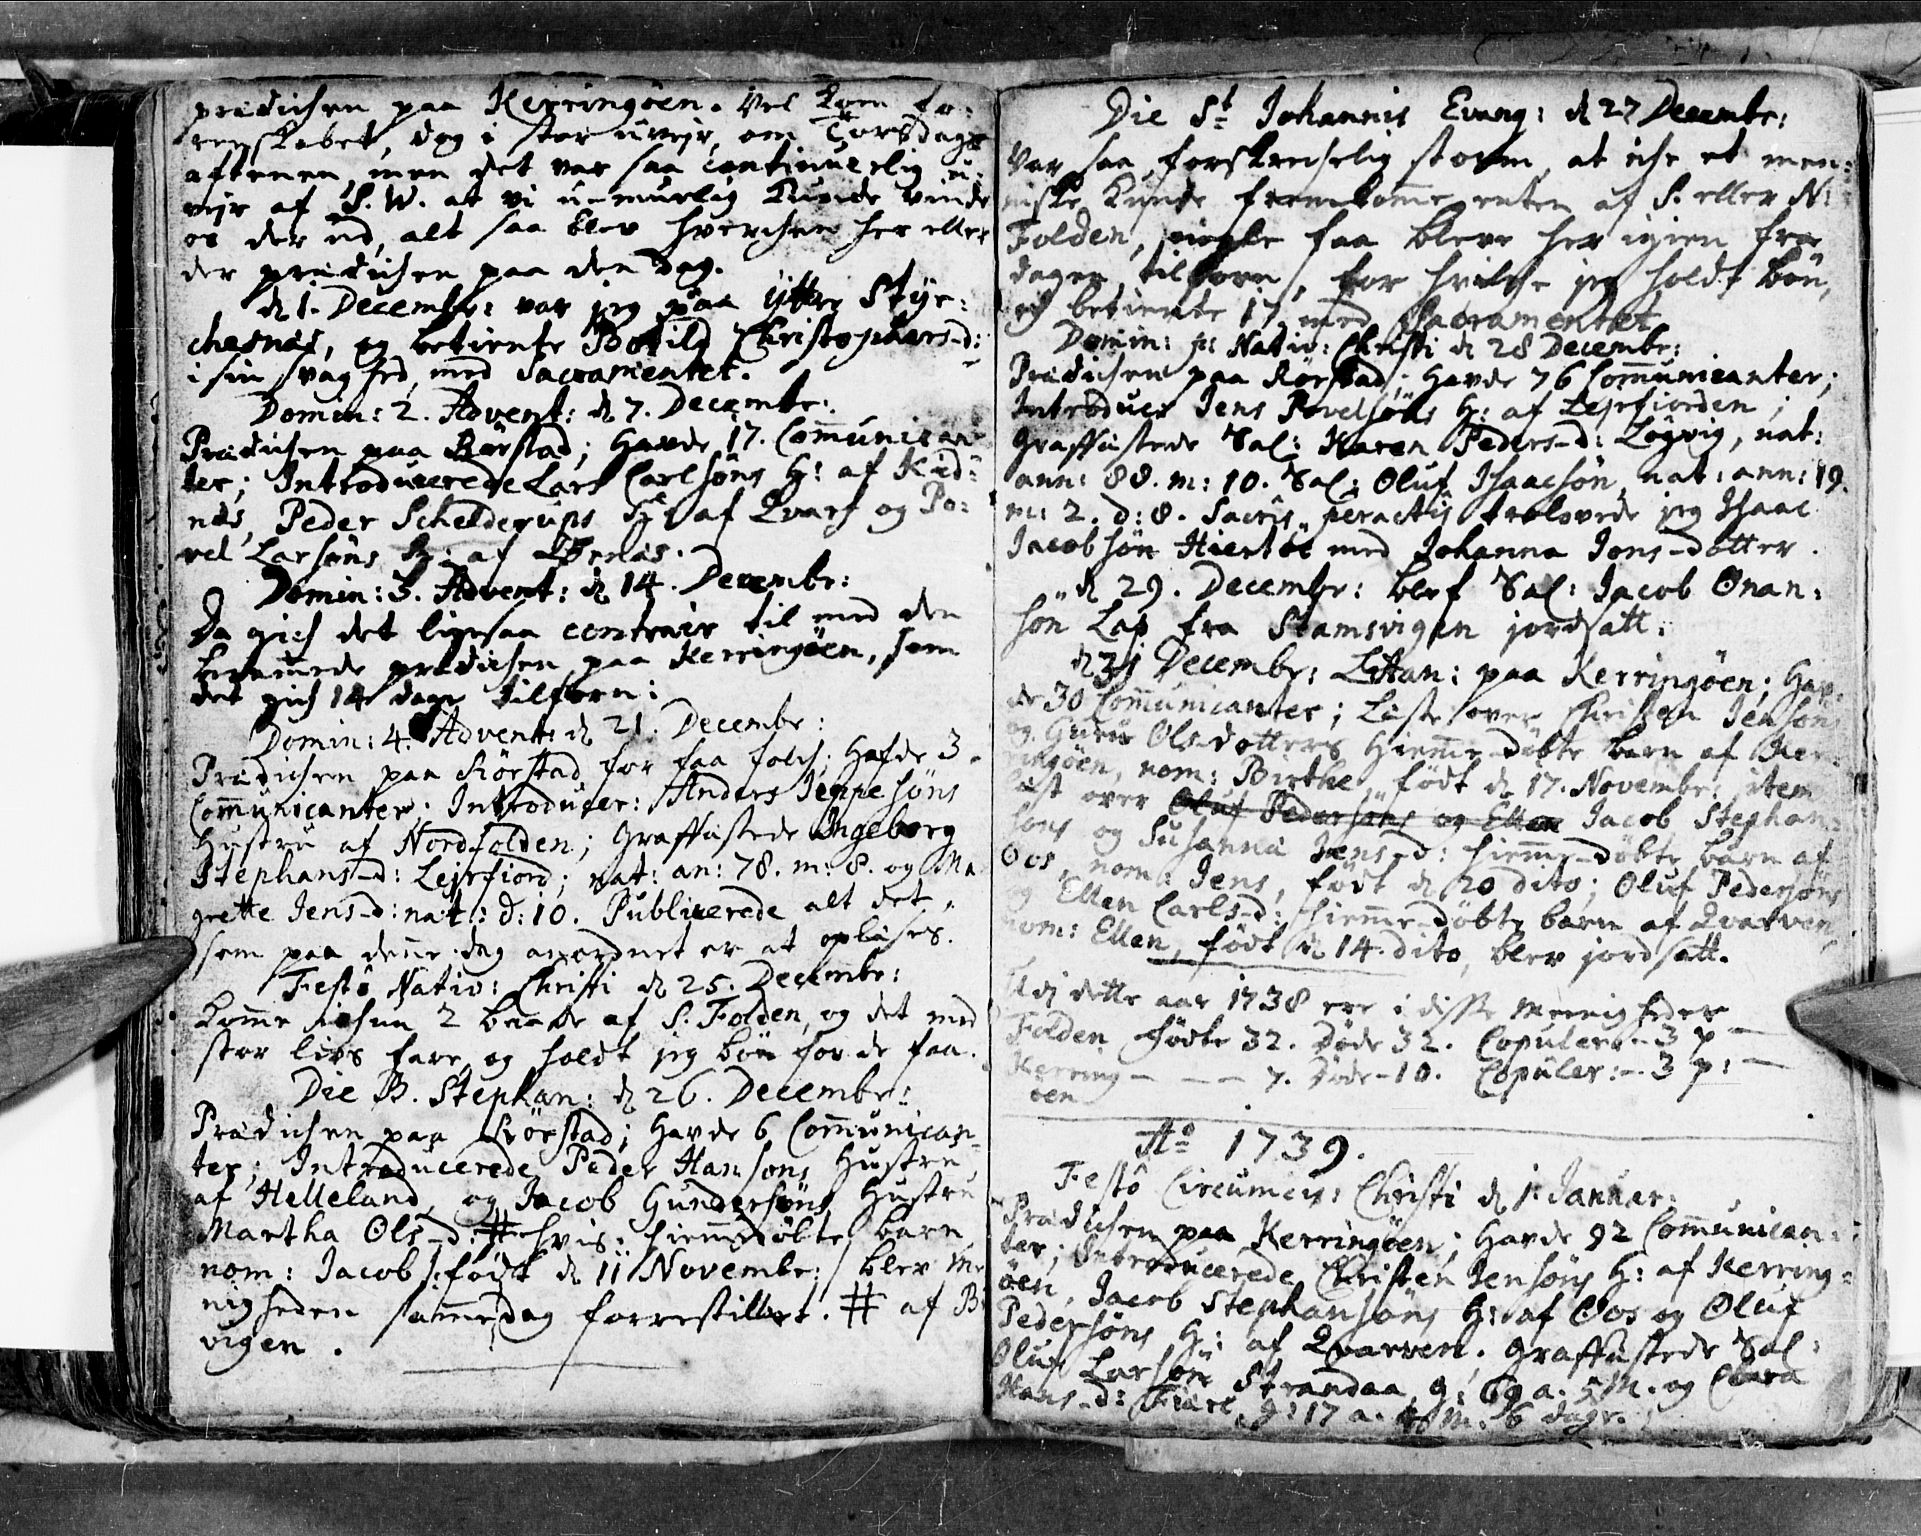 prædichen paa Kerringøen. Vel kom fo-
renskabet, dog i stor uvejr, om Torsdags
aftenen, men det var saa continuerlig u-
vejr af S. W. at vi u-muelig kunde vinde
os der ud, alt saa blev hverchen her eller
der prædichen paa den dag.
d 1. Decembr: var jeg paa Ytter Stye-
chesnæs, og betiente Botild Christophers-d:
i sin svaghed, med Sacramentet.
Domin: 2. Advent: d 7. Decembr:
Prædichen paa Rørstad; Havde 17. Com̄unican-
ter; Introducerede Lars Carlsøns H: af Kid-
næs, Peder Schelderups H: af Qvarf og Po-
vel Larsøns H: af
Domin: 3. Advent: d 14. Decembr:
Da gich det ligesaa contrair til med den
beram̄ede prædichen paa Kerringøen, som
det gich 14 dage tilforn:
Domin: 4. Advent: d 21. Decembr:
Prædichen paa Rørstad for faa folch; Hafde 3.
Com̄unicanter; Introducer: Anders Jeppesøns
Hustru af Nordfolden; Graffæstede Ingeborg
Stephans-d: Lejrfiord; nat: an: 78. m: 8. og Ma-
grette Jens-d: nat: d: 10. Publicerede alt det,
som paa den̄e dag anordnet er at oplæses.
Festo Nativ: Christi d 25. Decembr:
Kom̄e ichun 2 baade af S. Folden, og det med
stor lifs fare, og holdt jeg bøn for de faa.
Die B. Stephan: d 26. Decembr:
Prædichen paa Rørstad; Havde 6 Com̄unican-
ter; Introducerede Peder Hansøns Hustru
af Helleland, og Jacob Gundersøns Hustru
Martha Ols-d: # hvis hiem̄edøbte barn
nom: Jacob /: født d 11 Novembr: / blev me-
nigheden sam̄e dag forrestillet. # af B
vigen.

Die St Johannis Evang: d 27 Decembr:
Var saa forskrechelig storm, at iche et men-
niske kunde fremkom̄e enten af S. eller N:
Folden, nogle faa bleve her igien fra
dagen tilforn, for hvilche jeg holdt bøn,
og betiente 17 med Sacramentet
Domin: p: Nativ: Christi d 28 Decembr:
Prædichen paa Rørstad; Havde 76 Com̄unicanter;
Introducr Jens Povelsøns H: af Lejrfiorden;
Graffæstede Sal: Karen Peders-d: Løgvig, nat:
ann: 88. m: 10. Sal: Oluf Isaacsøn, nat: ann: 19.
m: 2. d: 8. Sacris peractis trolovede jeg Isaac
Jacobsøn Hiertøe med Johanna Jons-dotter.
d 29. Decembr: blef Sal: Jacob Onan-
søn Lap fra Stamsvigen jordsatt.
d 31 Decembr: Littan: paa Kerringøen; Hav-
de 30 Com̄unicanter; Læste over Christen Jensøns
og Guru Ols-dotters hiem̄e-døbte barn af Ker-
ringøen, nom: Birthe, født d 17. Novembr: item
læst over Oluf Pedersøns og Ellen Jacob Stephan-
søns og Susanna Jens-d: hiem̄e-døbte barn af
Oos, nom: Jens, født d 20 dito; Oluf Pedersøns
og Ellen Carls-d: hiem̄e-døbte barn af Qvarven,
nom: Ellen, født d 14. dito, blev jordsatt.
Udj dette aar 1738 ere i disse Meenigheder
Folden fødte 32. Døde 32. Copuler: - 3 p —
Kerring - — — 7. Døde - 10. Copuler: - 3 p: —
øen
Ao 1739.
Festo Circumcis: Christi d 1: Januar:
Prædichen paa Kerringøen; Havde 92 Com̄unican-
ter; Introducerede Christen Jensøns H: af Kerring-
øen, Jacob Stephansøns H: af Oos og Oluf
Pedersøns H: af Qvarven. Graffæstede Sal:
Oluf Larsøn Strandaa, g: 69 a. 5 M. og Clara
Hans-d: Fiære, g: 17 a. 4 M. 6 dage.